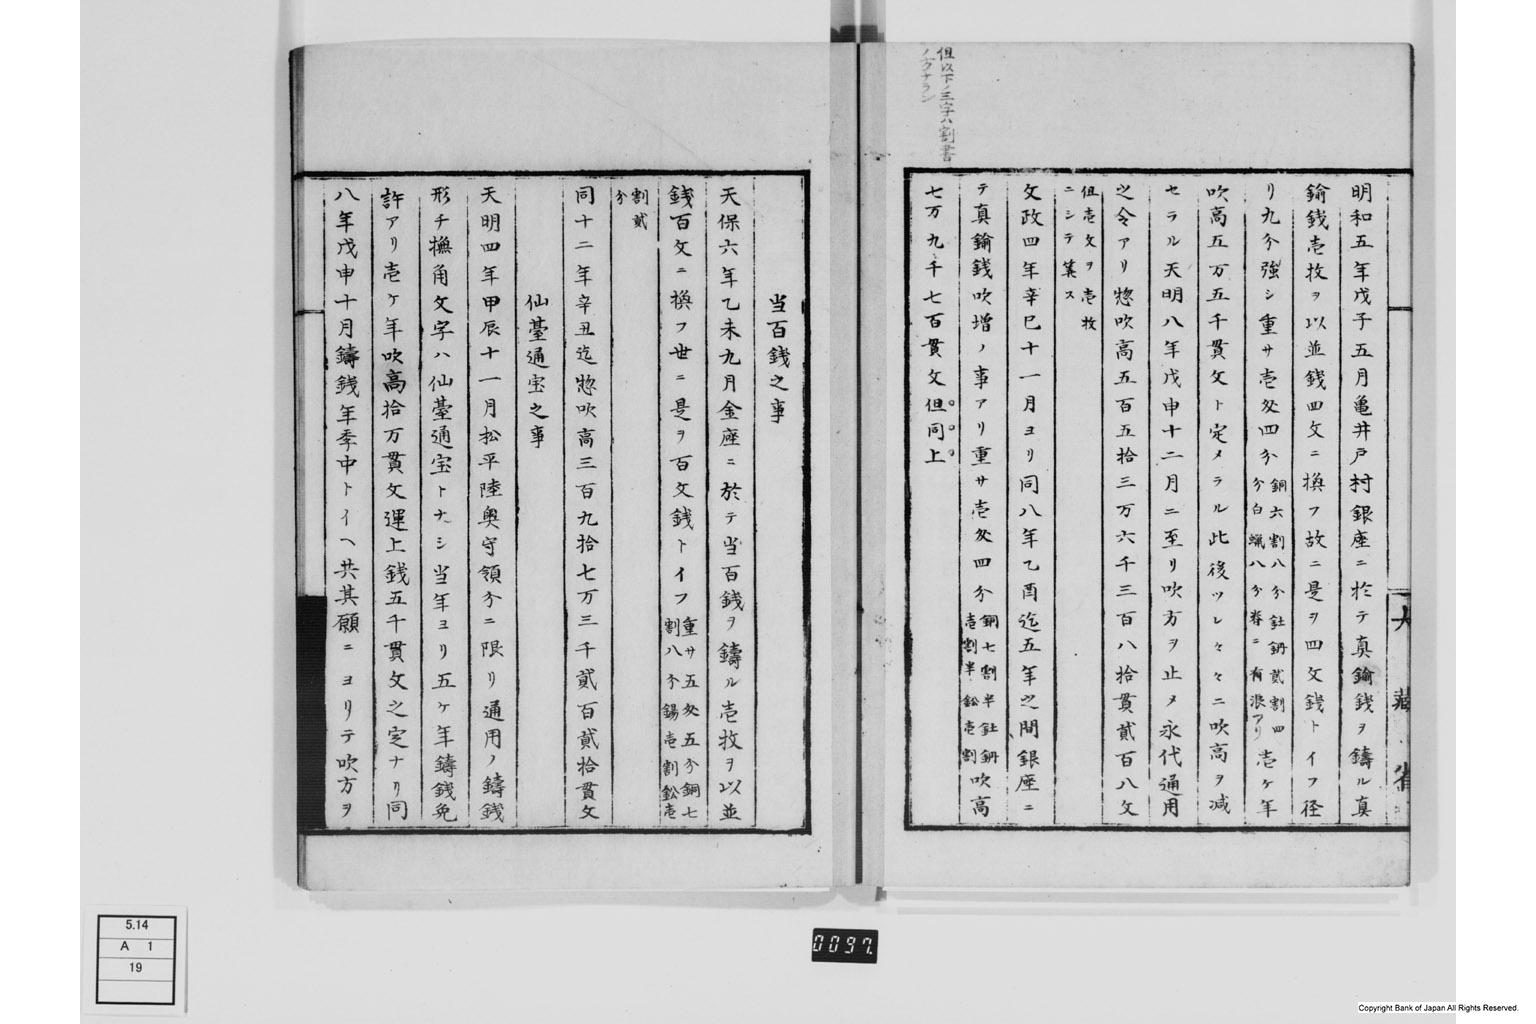 但以下ノ三字ハ割書
ノナラン
明和五年戊子五月亀井戸村銀座ニ於テ真鍮銭ヲ鑄ル真
鍮銭壱枚ヲ以並銭四文ニ換フ故ニ是ヲ四文銭トイフ径
リ九分強シ重サ壱匁四分銅六割八分亜鉛貳割四分白蝋八分 壱ケ年
吹高五万五千貫文ト定メラル此後ツレ々々ニ吹高ヲ减
セラル天明八年戊申十二月ニ至リ吹方ヲ止メ永代通用
之令アリ惣吹高五百五拾三万六千三百八拾貫貳百八文
但壱文ヲ壱枚
ニシテ算ス
文政四年辛巳十一月ヨリ同八年乙酉迄五年之間銀座ニ
テ真鍮銭吹增ノ事アリ重サ壱匁四分銅七割半亜鉛壱割半鉛壱割吹高
七万九千七百貫文但同上
当百銭之事
天保六年乙未九月金座ニ於テ当百銭ヲ鑄ル壱枚ヲ以並
銭百文ニ換フ世ニ是ヲ百文銭トイフ重サ五匁五分銅七割八分錫壱割鉛壱
割貳
分
同十二年辛丑迄惣吹高三百九拾七万三千貳百貳拾貫文
仙䑓通宝之事
天明四年甲辰十一月松平陸奥守領分ニ限リ通用ノ鑄銭
形チ撫角文字ハ仙䑓通宝トナシ当年ヨリ五ケ年鑄銭免
許アリ壱ケ年吹高拾万貫文運上銭五千貫文之定ナリ同
八年戊申十月鑄銭年季中トイヘ共其願ニヨリテ吹方ヲ
大
藏
省
5.14
A 1
19
0097
Copyright Bank of Japan All Rights Reserved.